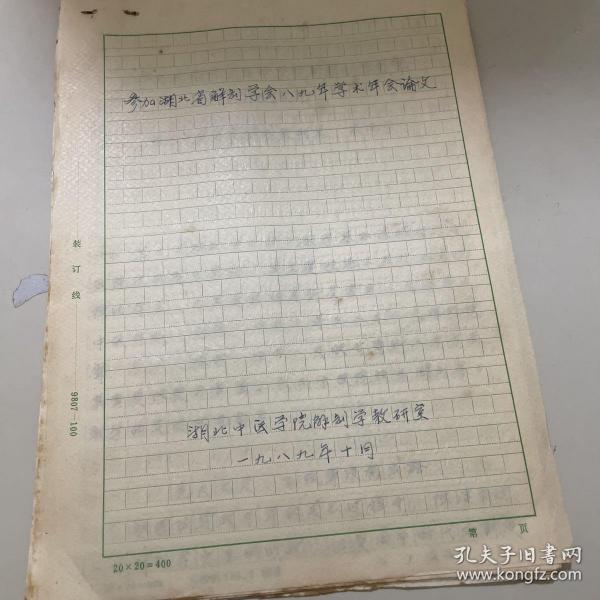 参加湖北省解剖学会八九年学术年会论文
装订线
9807—100
湖北中医学院解剖学教研室
一九八九年十月
第 页
20×20=400
孔夫子旧书网
www.kongfz.com